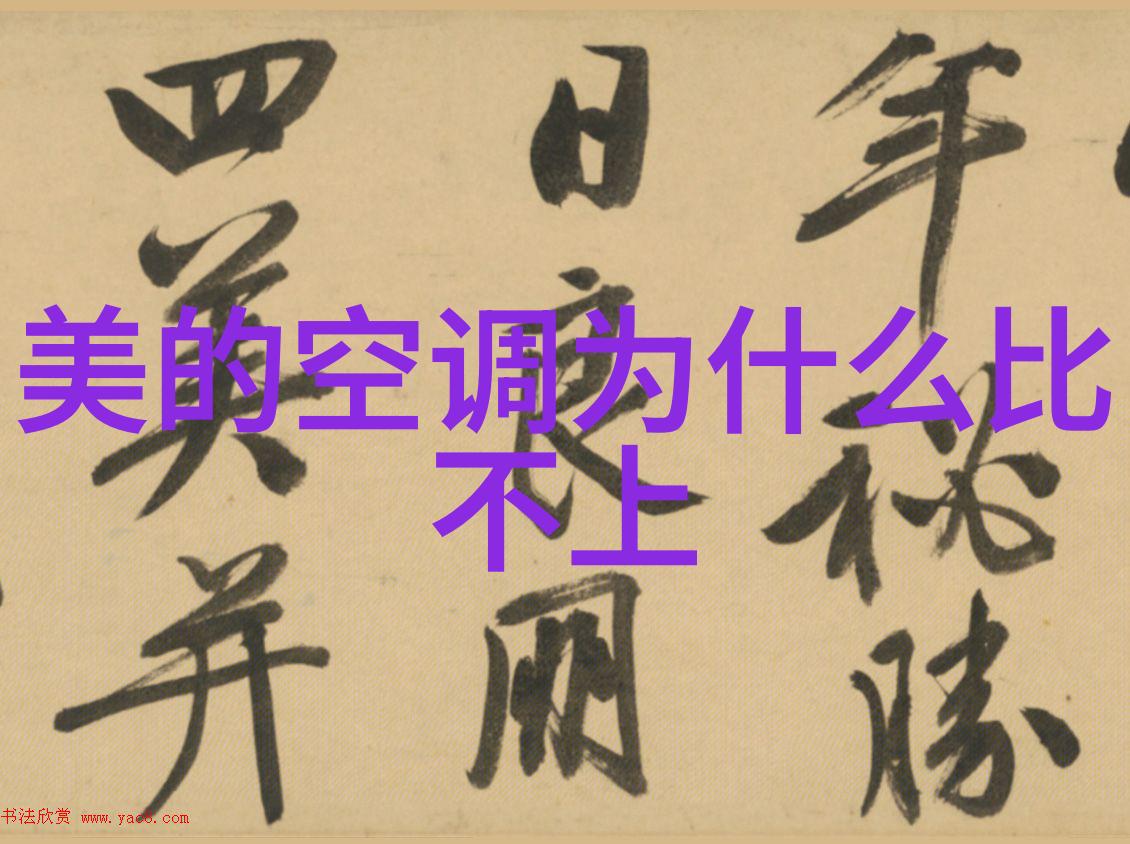 美的空调为什么比
不上
年秘勝
日良
四美并
书法欣赏 www.yac8.com